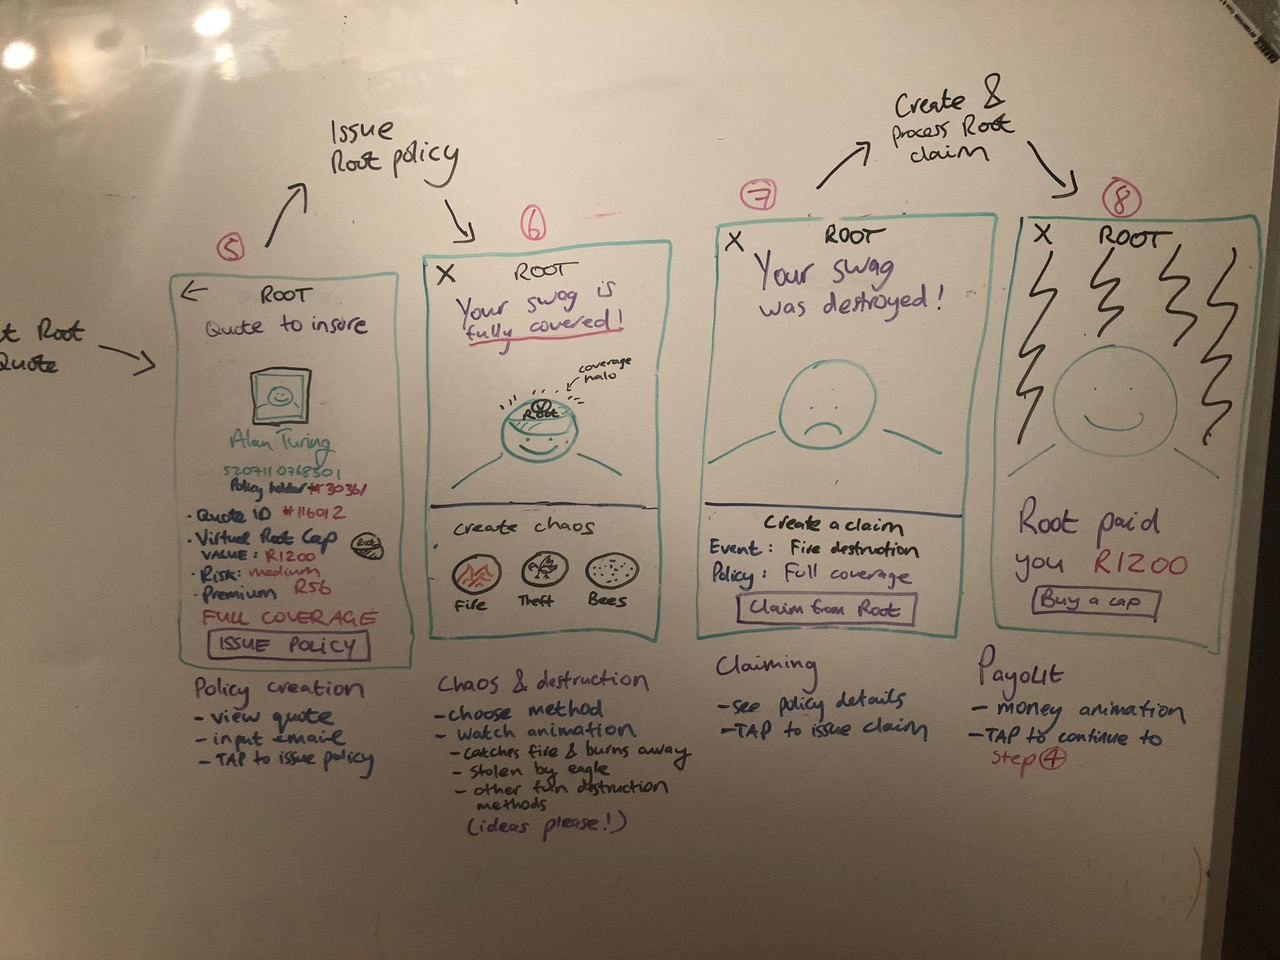 Create &
process Root
claim
Issue
Root policy
t Root
Quote
5
←
ROOT
Quote to insure
Alan Turing
5207110768501
Policy holder #30361
· Quote ID #116012
· Virtual Root Cap
Root
VALUE: R1200
· Risk: medium
· Premium R56
FULL COVERAGE
ISSUE POLICY
Policy creation
- view quote
- input email
- TAP to issue policy
6
X
ROOT
Your swag is
fully covered!
coverage
halo
Root
create chaos
Fire
Theft
Bees
Chaos & destruction
- choose method
- watch animation
- catches fire & burns away
- stolen by eagle
- other fun destruction
methods
(ideas please!)
7
X
ROOT
Your swag
was destroyed!
Create a claim
Event: Fire destruction
Policy: Full coverage
Claim from Root
Claiming
- see policy details
- TAP to issue claim
8
X
ROOT
Root paid
you R1200
Buy a cap
Payout
- money animation
- TAP to continue to
Step 4